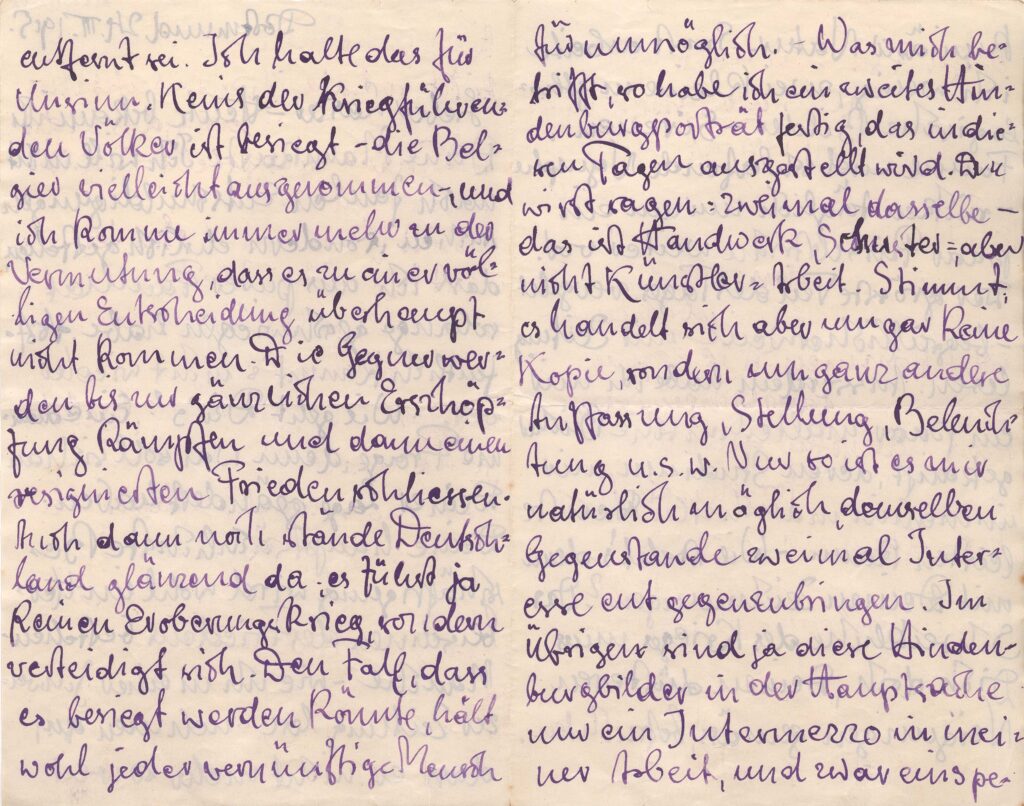 entfernt sei. Ich halte das für
Unsinn. Keins der kriegführen=
den Völker ist besiegt – die Bel=
gier vielleicht ausgenommen –, und
ich komme immer mehr zu der
Vermutung, dass es zu einer völ=
ligen Entscheidung überhaupt
nicht kommen. Die Gegner wer=
den bis zur gänzlichen Erschöp=
fung kämpfen und dann einen
resignierten Frieden schliessen.
Auch dann noch stände Deutsch=
land glänzend da: es führt ja
keinen Eroberungskrieg, sondern
verteidigt sich. Den Fall, dass
es besiegt werden könnte, hält
wohl jeder vernünftige Mensch
für unmöglich. – Was mich be=
trifft, so habe ich ein zweites Hin=
denburgporträt fertig, das in die=
sen Tagen ausgestellt wird. Du
wirst sagen: zweimal dasselbe –
das ist Handwerk, Schuster=, aber
nicht Künstler=Arbeit. Stimmt,
es handelt sich aber um gar keine
Kopie, sondern um ganz andere
Auffassung, Stellung, Beleuch=
tung u.s.w. Nur so ist es mir
natürlich möglich, demselben
Gegenstande zweimal Inter=
esse entgegenzubringen. Im
Übrigen sind ja diese Hinden=
burgbilder in der Hauptsache
nur ein Intermezzo in mei=
ner Arbeit, und zwar ein spe=